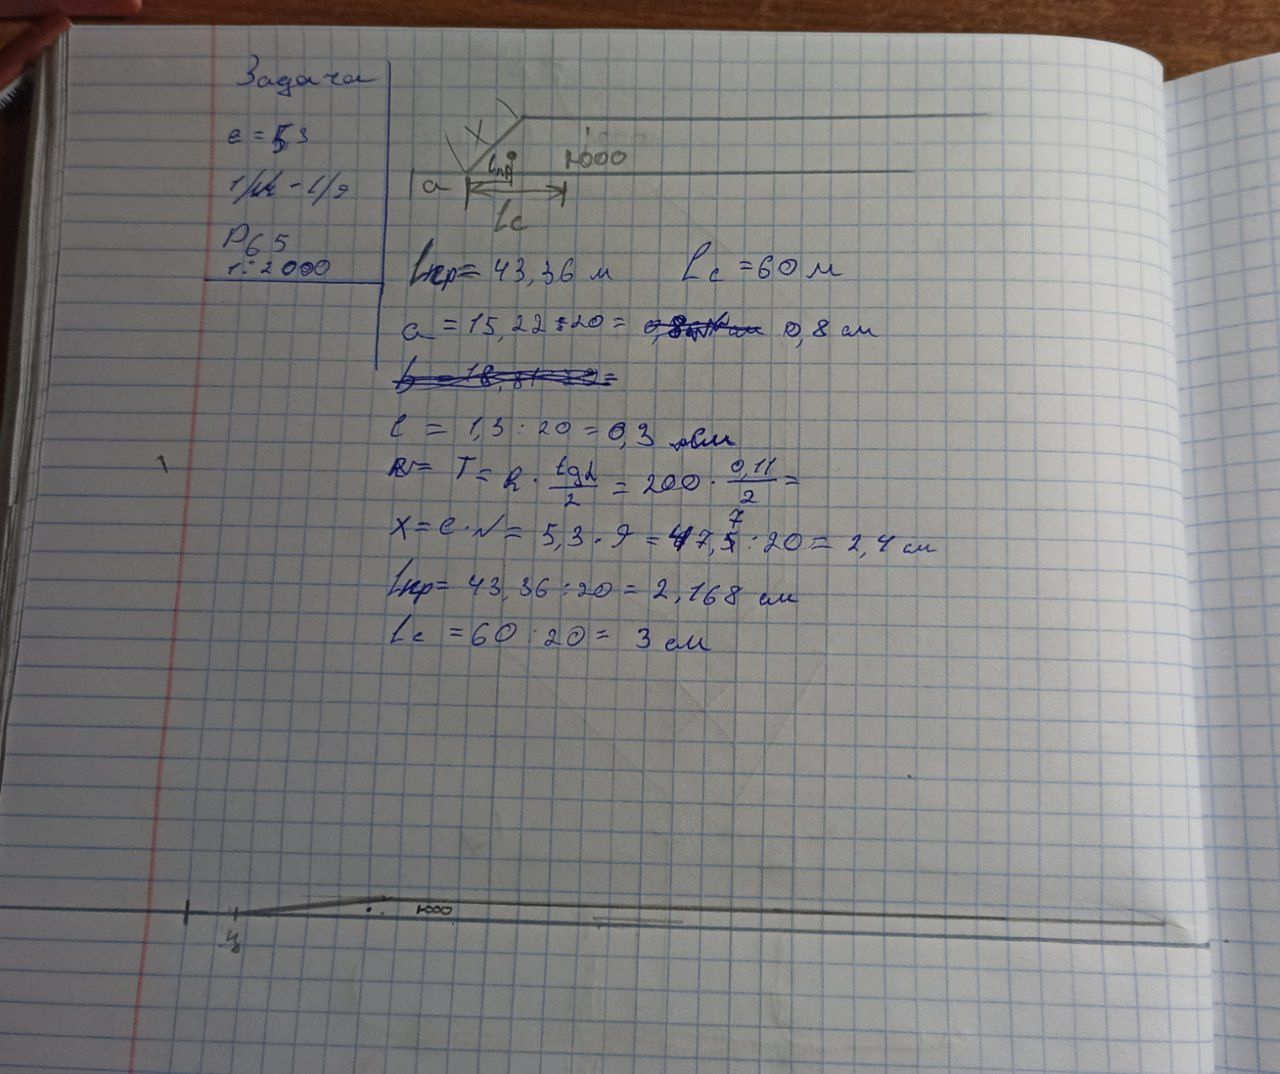 Задача
e = 5,3
1/N - 1/9
P65
1:2000
X
a
Lпр
1000
Lc
Lпр = 43,36 м Lc = 60 м
a = 15,22 : 20 = 0,8 см
e = 1,3 : 20 = 0,3 см
T = R · tgα/2 = 200 · 0,11/2 =
X = e · N = 5,3 · 9 = 47,7 : 20 = 2,4 см
Lпр = 43,36 : 20 = 2,168 см
Lc = 60 : 20 = 3 см
1000